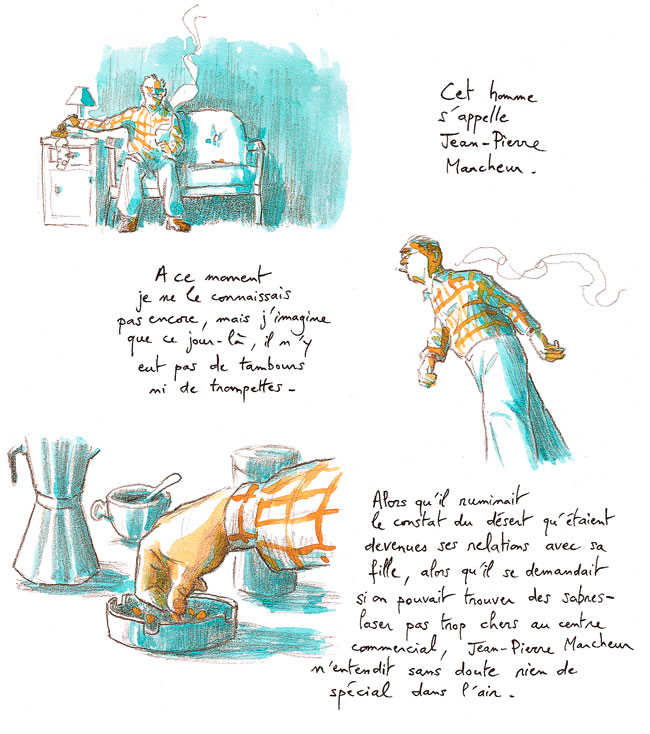 Cet homme
s'appelle
Jean-Pierre
Marcheur.
A ce moment
je ne le connaissais
pas encore, mais j'imagine
que ce jour-là, il n'y
eut pas de tambours
ni de trompettes -
Alors qu'il ruminait
le constat du désert qu'étaient
devenues ses relations avec sa
fille, alors qu'il se demandait
si on pouvait trouver des sabres-
laser pas trop chers au centre
commercial, Jean-Pierre Marcheur
n'entendit sans doute rien de
spécial dans l'air.